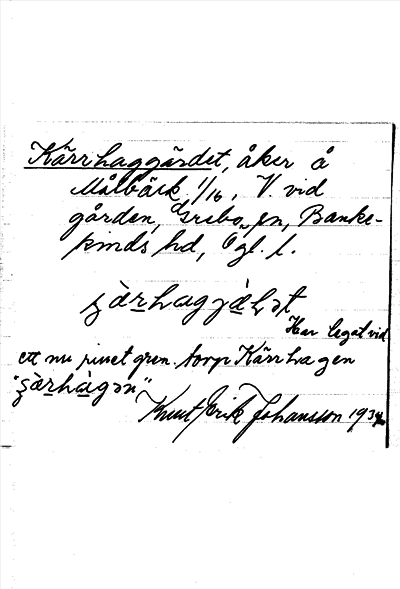 Kärrhaggärdet, åker å
Målbäck 1/16, V. vid
gården, Grebo sn, Banke-
kinds hd, Ögl. l.
Har legat vid
ett nu rivet gren. torp Kärrhagen
Knut Erik Johansson 1934